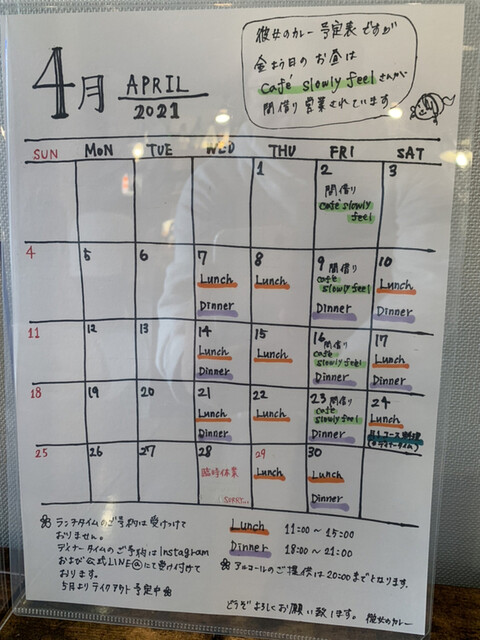 4月 APRIL
2021
彼女のカレー 予定表ですが
金よう日のお昼は
café slowly feelさんが
間借り営業されています
SUN MON TUE WED THU FRI SAT
1 2 3
間借り
café slowly
feel
4 5 6 7 8 9 間借り 10
Lunch Lunch café slowly feel Lunch
Dinner Dinner Dinner
11 12 13 14 15 16 間借り 17
Lunch Lunch café slowly feel Lunch
Dinner Dinner Dinner
18 19 20 21 22 23 間借り 24
Lunch Lunch café slowly feel Lunch
Dinner Dinner コース料理
(ディナータイム)
25 26 27 28 29 30
臨時休業 Lunch Lunch
SORRY... Dinner
❀ ランチタイムのご予約は受けつけて
おりません。
ディナータイムのご予約はInstagram
および公式LINE@にて受け付けて
おります。
5月よりテイクアウト予定中❀
Lunch 11:00～15:00
Dinner 18:00～21:00
❀ アルコールのご提供は20:00までとなります。
どうぞよろしくお願い致します。 彼女のカレー